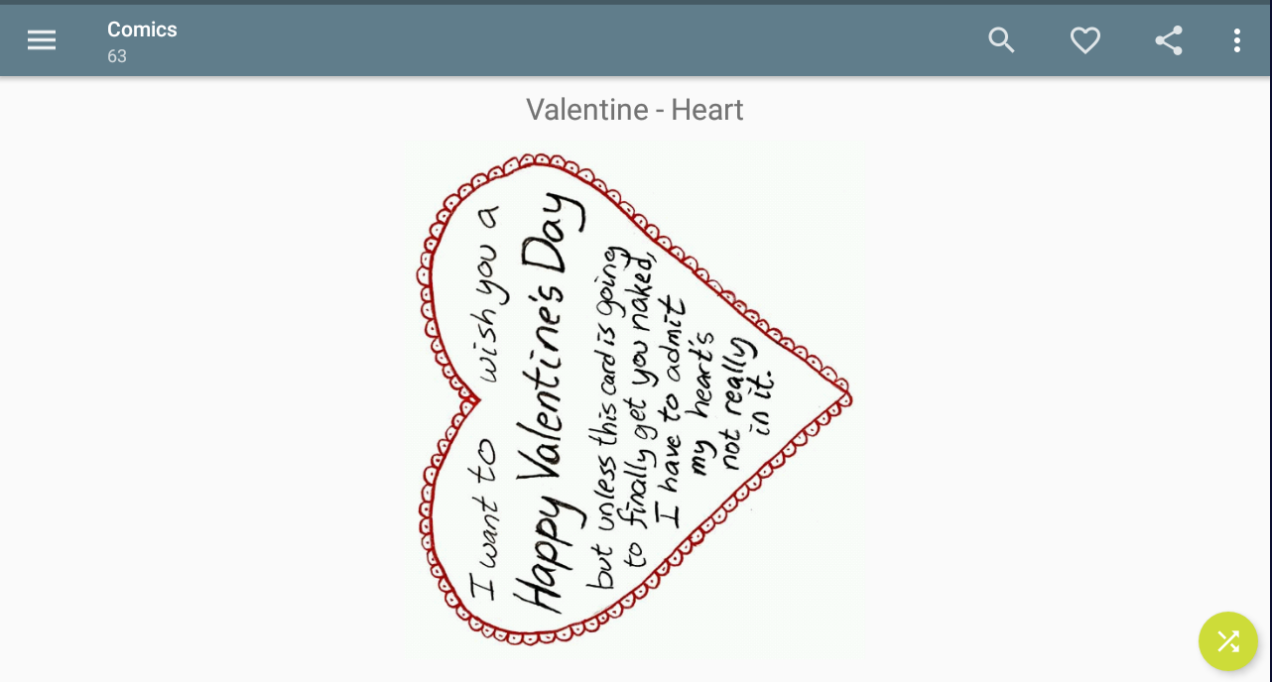 Comics
63
Valentine - Heart
I want to wish you a
Happy Valentine's Day
but unless this card is going
to finally get you naked,
I have to admit
my heart's
not really
in it.